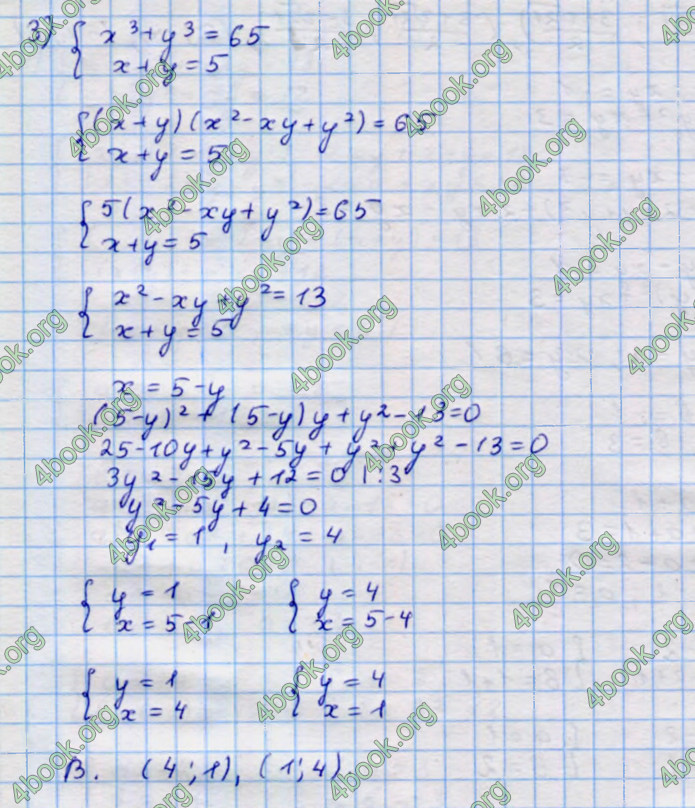 3) { x³ + y³ = 65
x + y = 5
{ (x + y)(x² - xy + y²) = 65
x + y = 5
{ 5(x² - xy + y²) = 65
x + y = 5
{ x² - xy + y² = 13
x + y = 5
x = 5 - y
(5-y)² + (5-y)y + y² - 13 = 0
25 - 10y + y² - 5y + y² + y² - 13 = 0
3y² - 15y + 12 = 0 | : 3
y² - 5y + 4 = 0
y₁ = 1 , y₂ = 4
{ y = 1 { y = 4
x = 5 - 1 x = 5 - 4
{ y = 1 { y = 4
x = 4 x = 1
В. (4 ; 1), (1 ; 4).
4book.org